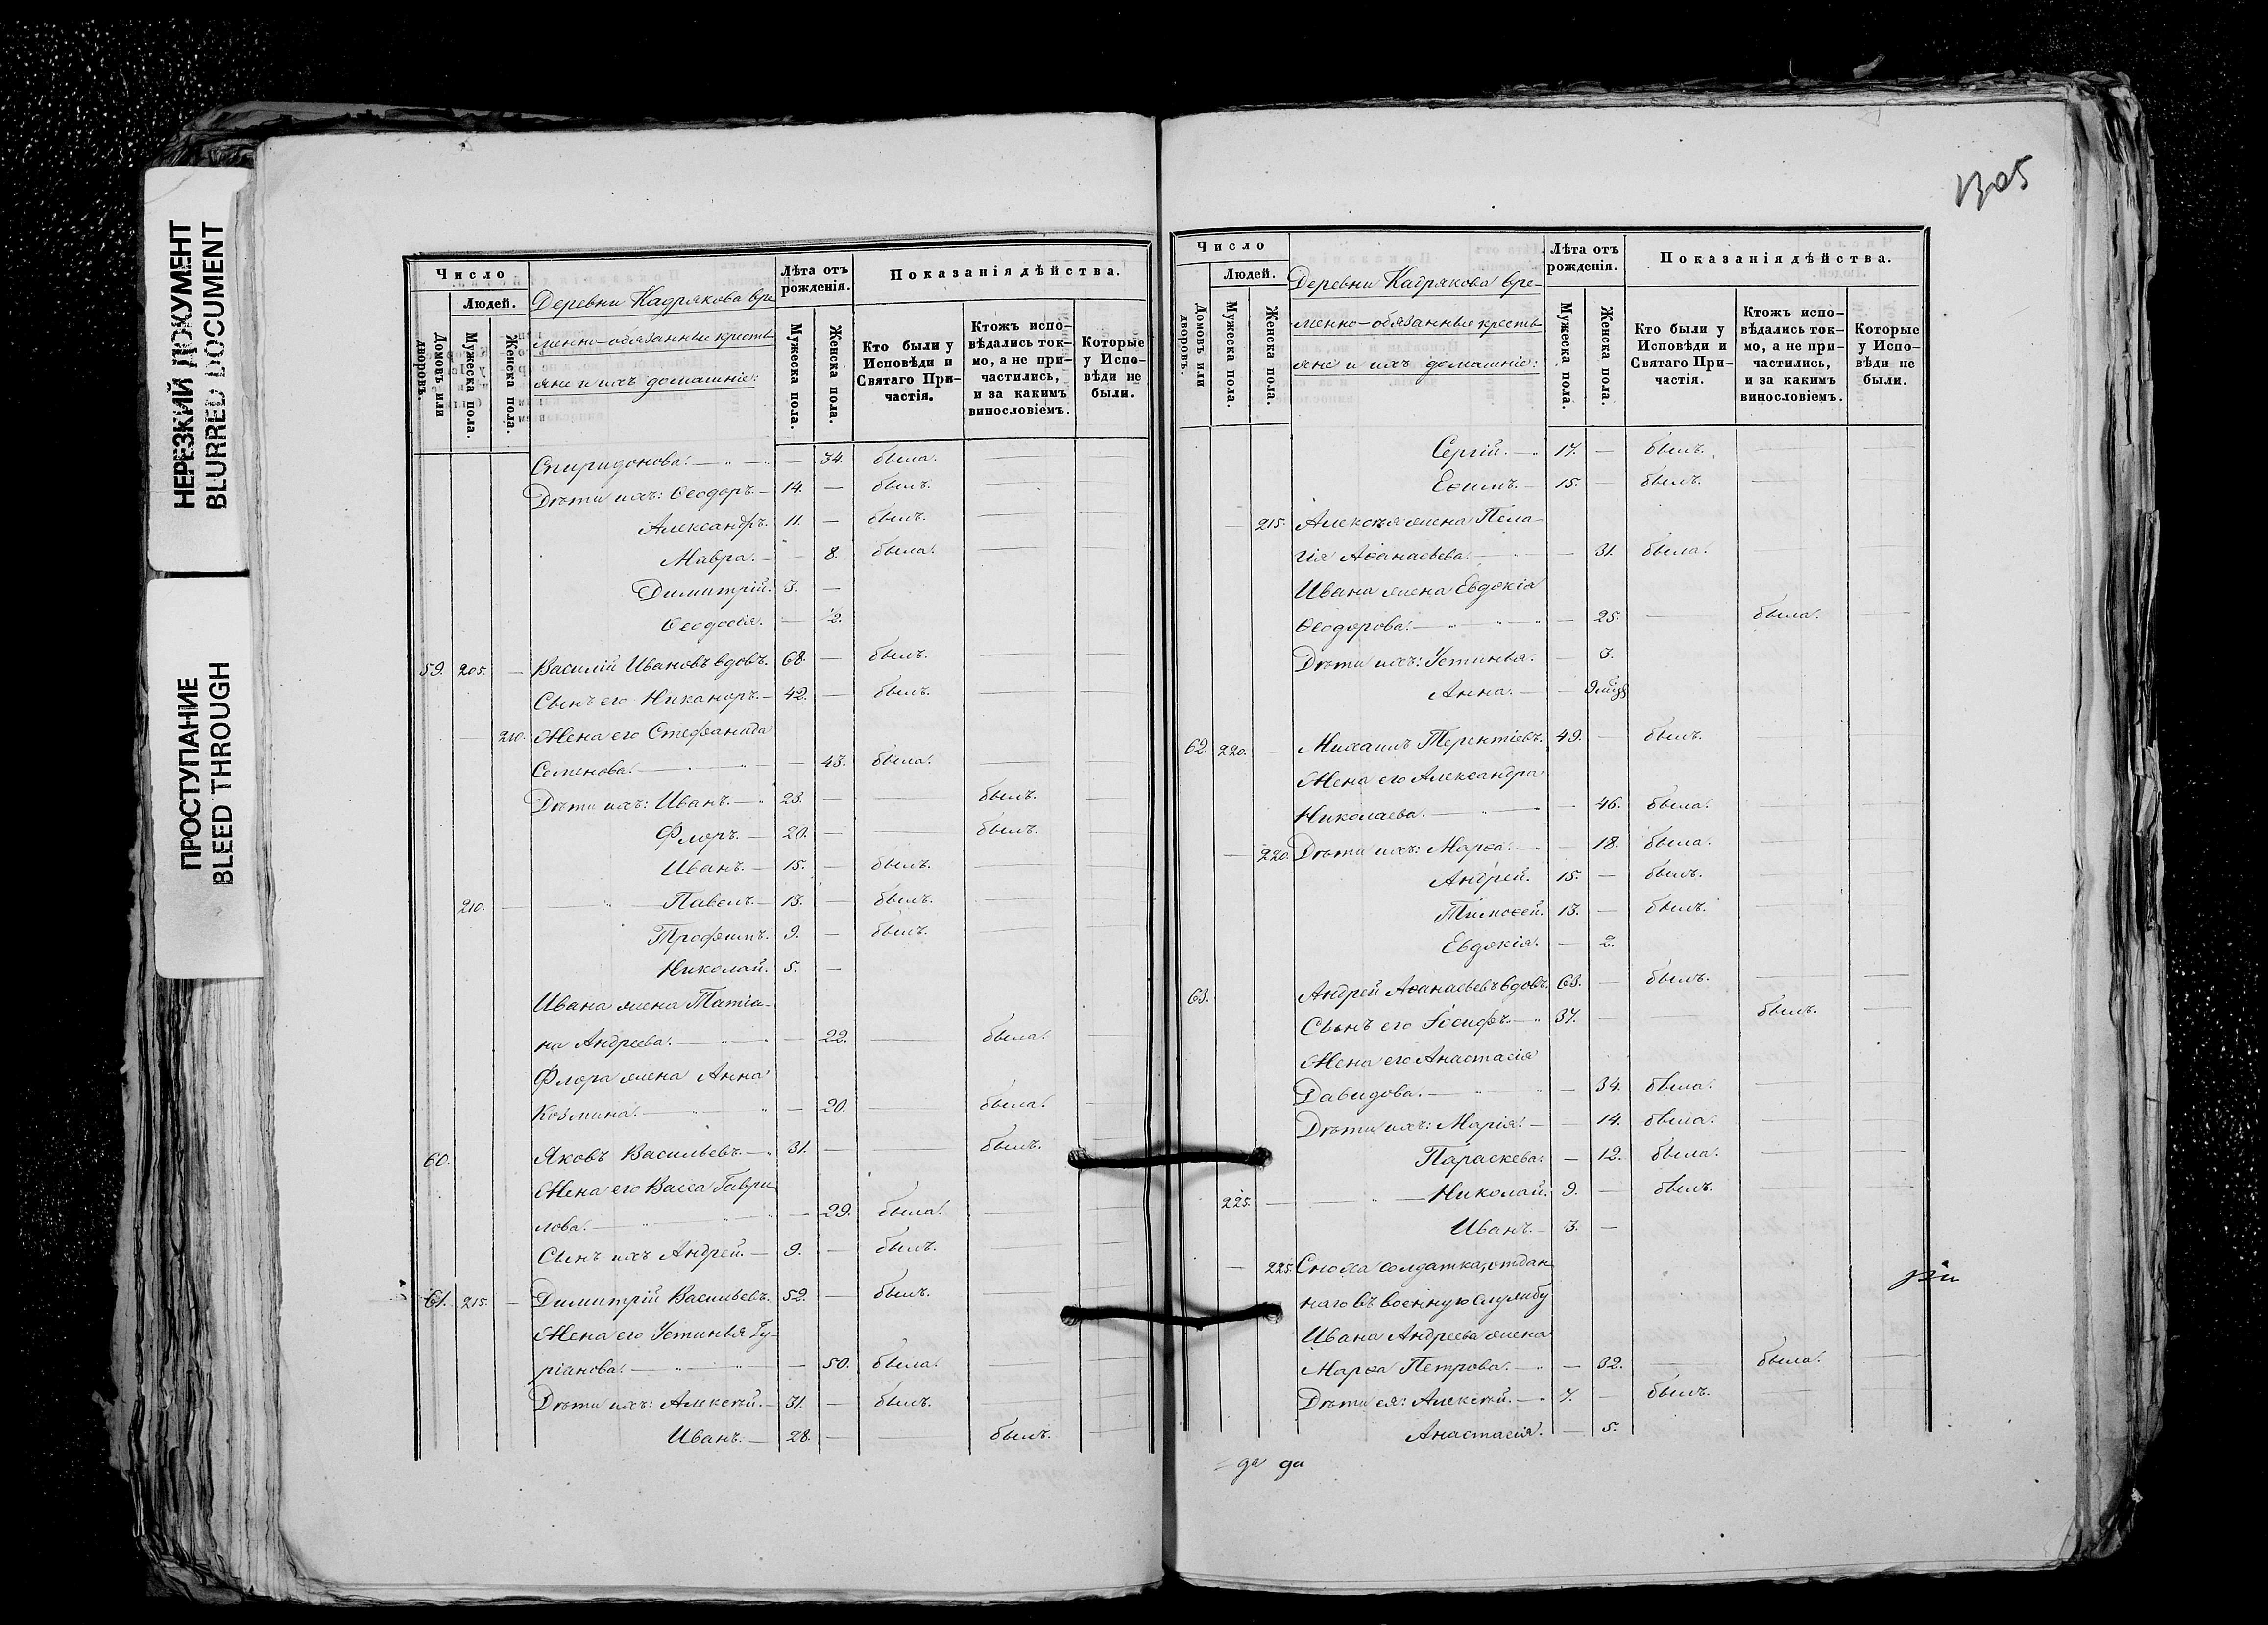 НЕРЕЗКИЙ ДОКУМЕНТ
BLURRED DOCUMENT
ПРОСТУПАНИЕ
BLEED THROUGH
Число
Людей.
Домовъ или дворовъ.
Мужеска пола.
Женска пола.
Деревни Кадрякова вре
менно-обязанные кресть
яне и ихъ домашніе:
Лѣта отъ рожденія.
Мужеска пола.
Женска пола.
Показанія дѣйства.
Кто были у Исповѣди и Святаго При-частія.
Ктожъ испо-вѣдались ток-мо, а не при-частились, и за какимъ винословіемъ.
Которые у Испо-вѣди не были.
Спиридонова. — 34. была.
Дѣти ихъ: Ѳеодоръ. 14. — былъ.
Александръ. 11. — былъ.
Мавра. — 8. была.
Димитрій. 3. —
Ѳеодосія. — 1/2.
59. 205. — Василій Ивановъ вдовъ. 68. — былъ.
Сынъ его Никаноръ. 42. — былъ.
— 210. Жена его Стефанида
Семенова. — 43. была.
Дѣти ихъ: Иванъ. 23. — — былъ.
Флоръ. 20. — — былъ.
Иванъ. 15. — былъ.
210. — Павелъ. 13. — былъ.
Трофимъ. 9. — былъ.
Николай. 5. —
Ивана жена Татіа-
на Андреева. — 22. — была.
Флора жена Анна
Козмина. — 20. — была.
60. Яковъ Васильевъ. 31. — — былъ.
Жена его Васса Гаври
лова. — 29. была.
Сынъ ихъ Андрей. 9. — былъ.
61. 215. — Димитрій Васильевъ. 52. — былъ.
Жена его Устинья Гу-
ріанова. — 50. была.
Дѣти ихъ: Алексѣй. 31. — былъ.
Иванъ. 28. — — былъ.
1305
Число
Людей.
Домовъ или дворовъ.
Мужеска пола.
Женска пола.
Деревни Кадрякова вре-
менно-обязанные кресть
яне и ихъ домашніе:
Лѣта отъ рожденія.
Мужеска пола.
Женска пола.
Показанія дѣйства.
Кто были у Исповѣди и Святаго При-частія.
Ктожъ испо-вѣдались ток-мо, а не при-частились, и за какимъ винословіемъ.
Которые у Испо-вѣди не были.
Сергій. 17. — былъ.
Ефимъ. 15. — былъ.
— 215. Алексѣя жена Пела-
гія Аѳанасьева. — 31. была.
Ивана жена Евдокія
Ѳеодорова. — 25. — была.
Дѣти ихъ: Устинья. — 3.
Анна. — 9
62. 220. — Михаилъ Терентіевъ. 49. — былъ.
Жена его Александра
Николаева. — 46. была.
— 220. Дѣти ихъ: Марѳа. — 18. была.
Андрей. 15. — былъ.
Тимоѳей. 13. — былъ.
Евдокія. — 2.
63. Андрей Аѳанасьевъ вдовъ. 63. — былъ.
Сынъ его Іосифъ. 37. — — былъ.
Жена его Анастасія
Давидова. — 34. была.
Дѣти ихъ: Марія. — 14. была.
Параскева. — 12. была.
225. — Николай. 9. — былъ.
Иванъ. 3. —
— 225. Сноха солдатка, отдан
наго въ военную службу
Ивана Андреева жена
Марѳа Петрова. — 32. — была.
Дѣти ея: Алексѣй. 7. — былъ.
Анастасія. — 5.
да да